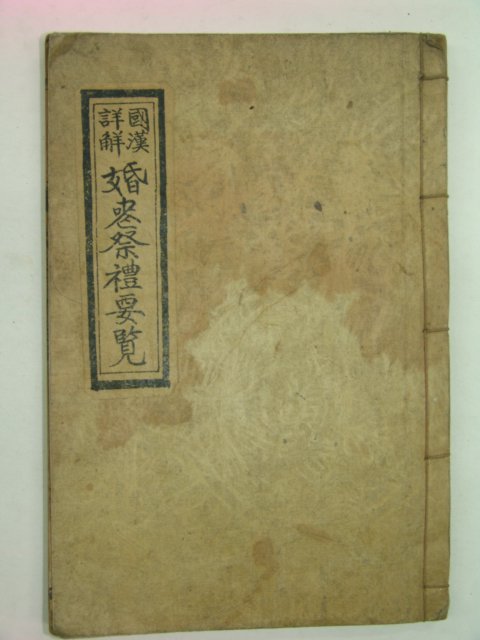 國漢
詳解
婚喪祭禮要覧